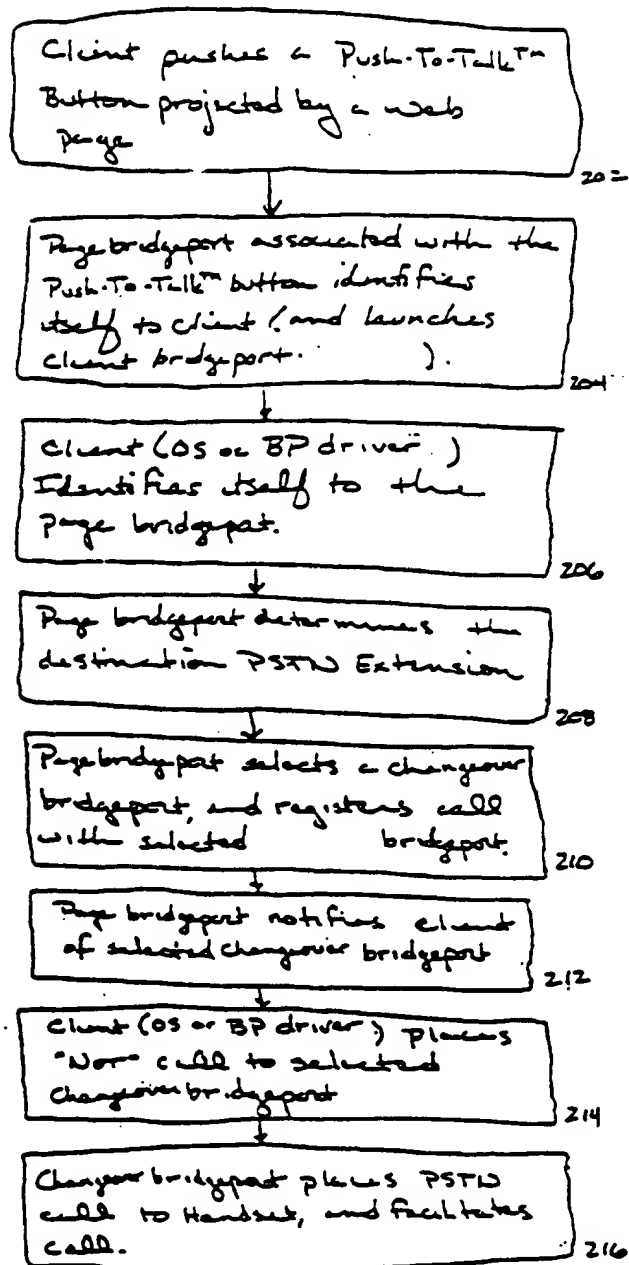 Client pushes a Push-To-Talk™
Button projected by a web
page
202
Page bridgeport associated with the
Push-To-Talk™ button identifies
itself to client (and launches
client bridgeport. ).
204
Client (OS or BP driver )
Identifies itself to the
Page bridgeport.
206
Page bridgeport determines the
destination PSTN Extension
208
Page bridgeport selects a changeover
bridgeport, and registers call
with selected bridgeport.
210
Page bridgeport notifies client
of selected changeover bridgeport
212
Client (OS or BP driver ) places
"Net" call to selected
Changeover bridgeport
214
Changeover bridgeport places PSTN
call to Handset, and facilitates
call.
216